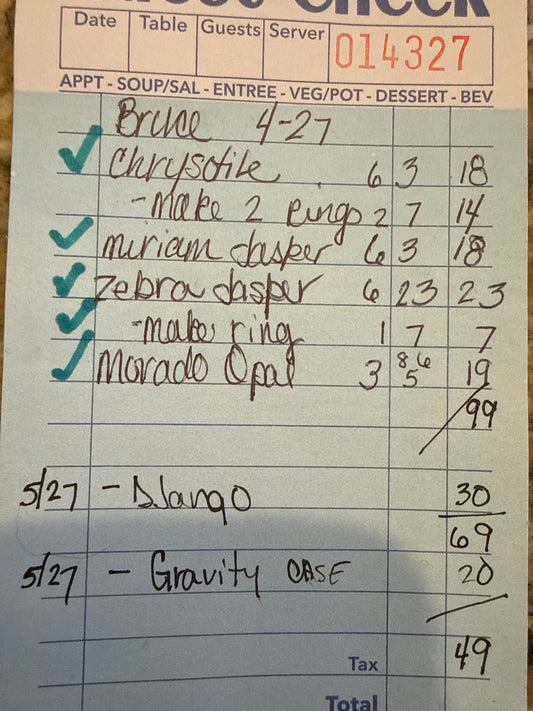 Check
Date Table Guests Server 014327
APPT - SOUP/SAL - ENTREE - VEG/POT - DESSERT - BEV
Bruce 4-27
✓ Chrysotile 6 3 18
- Make 2 Rings 2 7 14
✓ miriam Jasper 6 3 18
✓ Zebra Jasper 6 23 23
✓ - make ring 1 7 7
✓ Morado Opal 3 8.6 5 19
99
5/27 - DJango 30
69
5/27 - Gravity CASE 20
49
Tax
Total